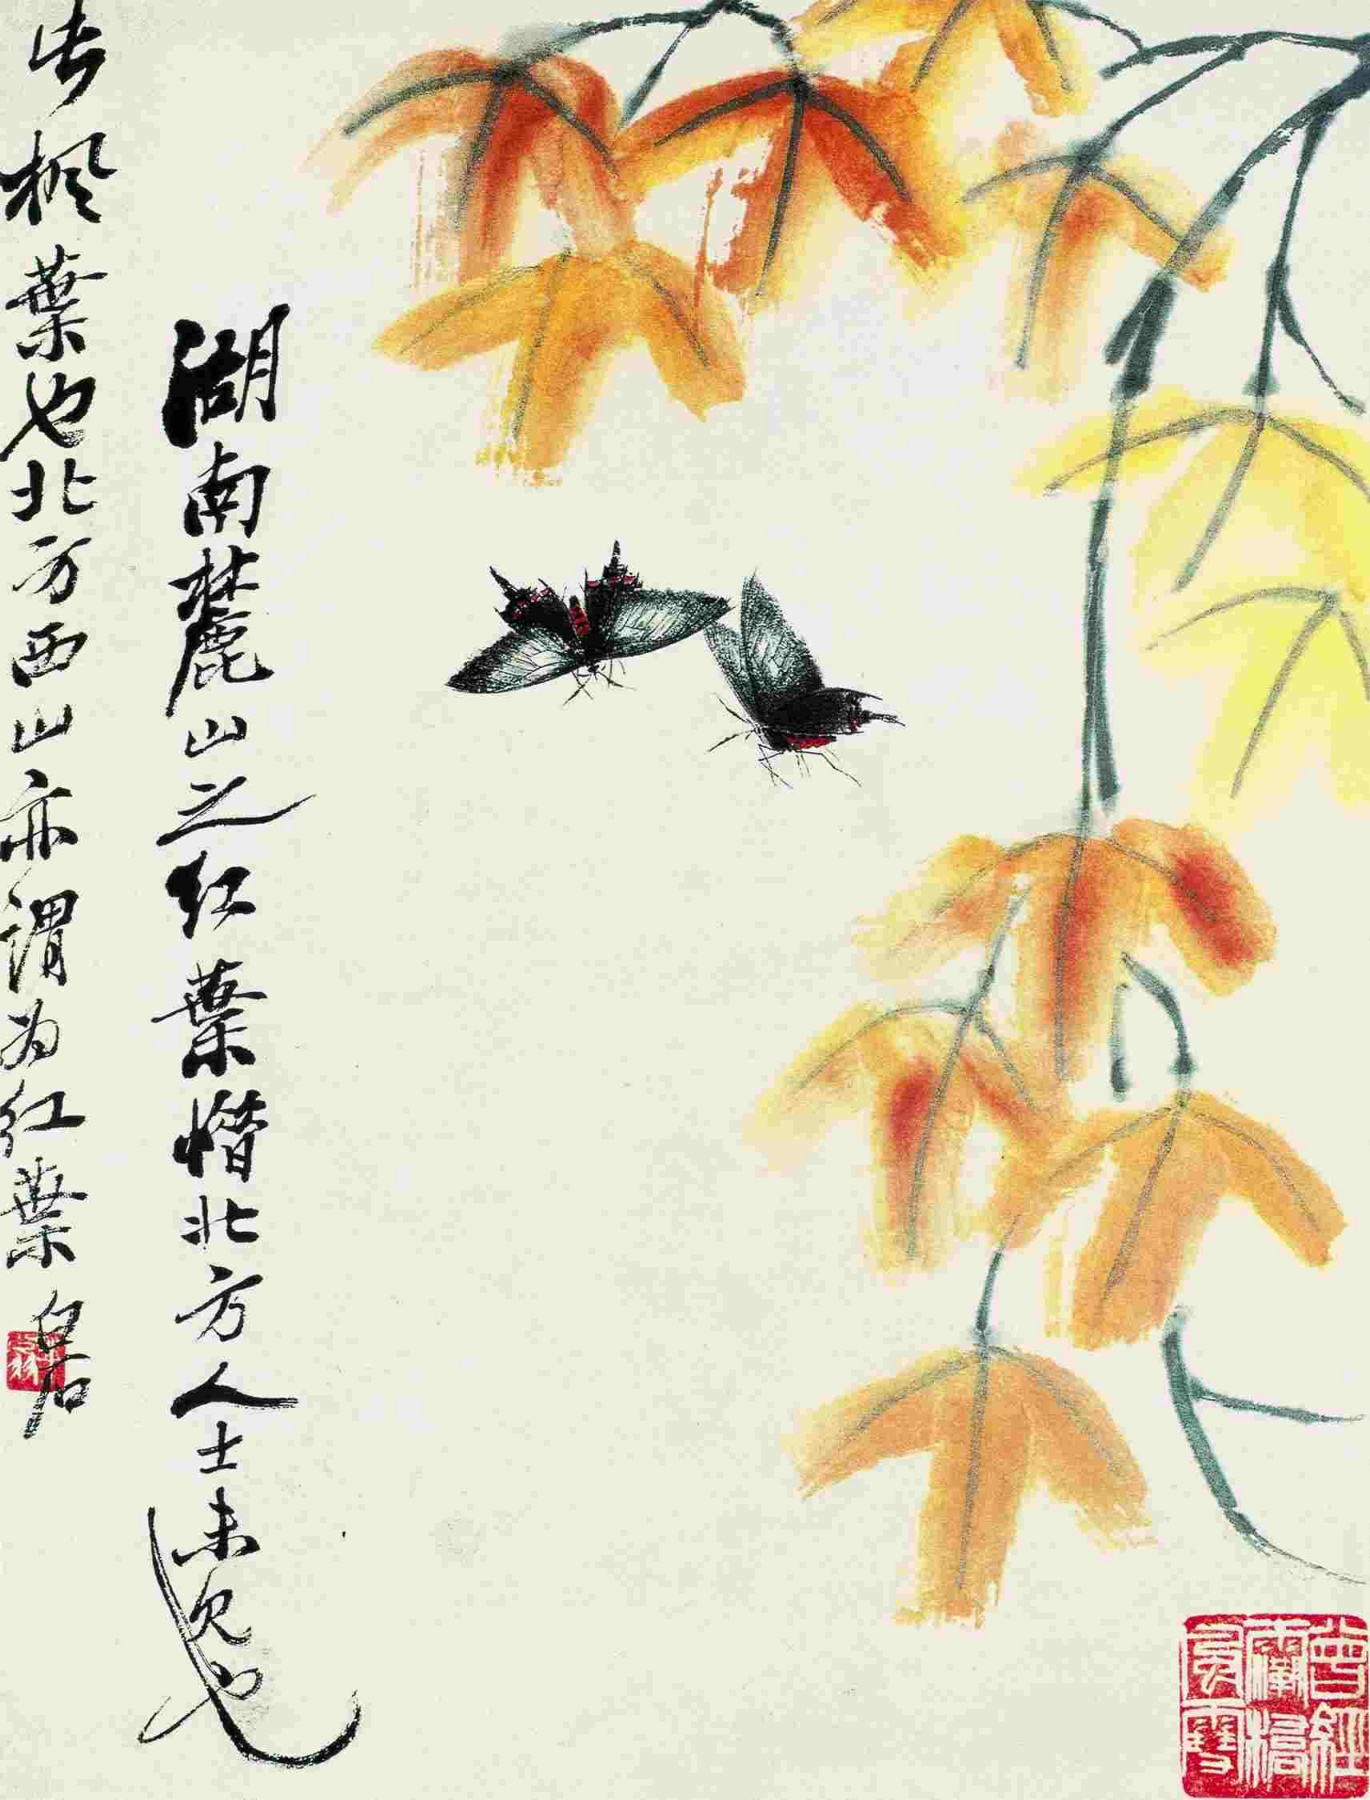 湖南麓山之红葉惜北方人士未见也
此枫葉也北方西山亦謂为红葉 白石
曾經灞橋風雪